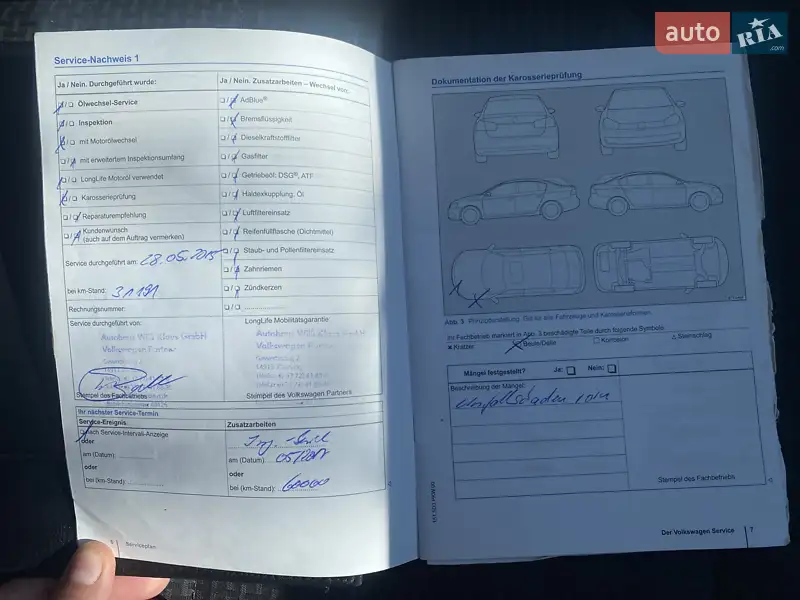 auto RIA.com
Service-Nachweis 1
Ja / Nein. Durchgeführt wurde:
Ölwechsel-Service
Inspektion
mit Motorölwechsel
mit erweitertem Inspektionsumfang
LongLife Motoröl verwendet
Karosserieprüfung
Reparaturempfehlung
Kundenwunsch
(auch auf dem Auftrag vermerken)
Service durchgeführt am: 28.05.2015
bei km-Stand: 31191
Rechnungsnummer:
Service durchgeführt von:
Autohaus
Volkswagen Partner
Stempel des Fachbetriebs
Ja / Nein. Zusatzarbeiten – Wechsel von:
AdBlue®
Bremsflüssigkeit
Dieselkraftstofffilter
Gasfilter
Getriebeöl: DSG®, ATF
Haldexkupplung, Öl
Luftfiltereinsatz
Reifenfüllflasche (Dichtmittel)
Staub- und Pollenfiltereinsatz
Zahnriemen
Zündkerzen
LongLife Mobilitätsgarantie
Autohaus
Volkswagen
Stempel des Volkswagen Partners
Ihr nächster Service-Termin
Service-Ereignis
nach Service-Intervall-Anzeige
oder
am (Datum):
oder
bei (km-Stand):
Zusatzarbeiten
am (Datum): 05/2017
oder
bei (km-Stand): 60000
6 Serviceplan
Dokumentation der Karosserieprüfung
Abb. 3 Prinzipdarstellung. Gilt für alle Fahrzeuge und Karosserieformen.
Im Fachbetrieb markiert in Abb. 3 beschädigte Teile durch folgende Symbole
Kratzer Beule/Delle Korrosion Steinschlag
Mängel festgestellt? Ja: Nein:
Beschreibung der Mängel:
Unfallschaden
Stempel des Fachbetriebs
Der Volkswagen Service 7